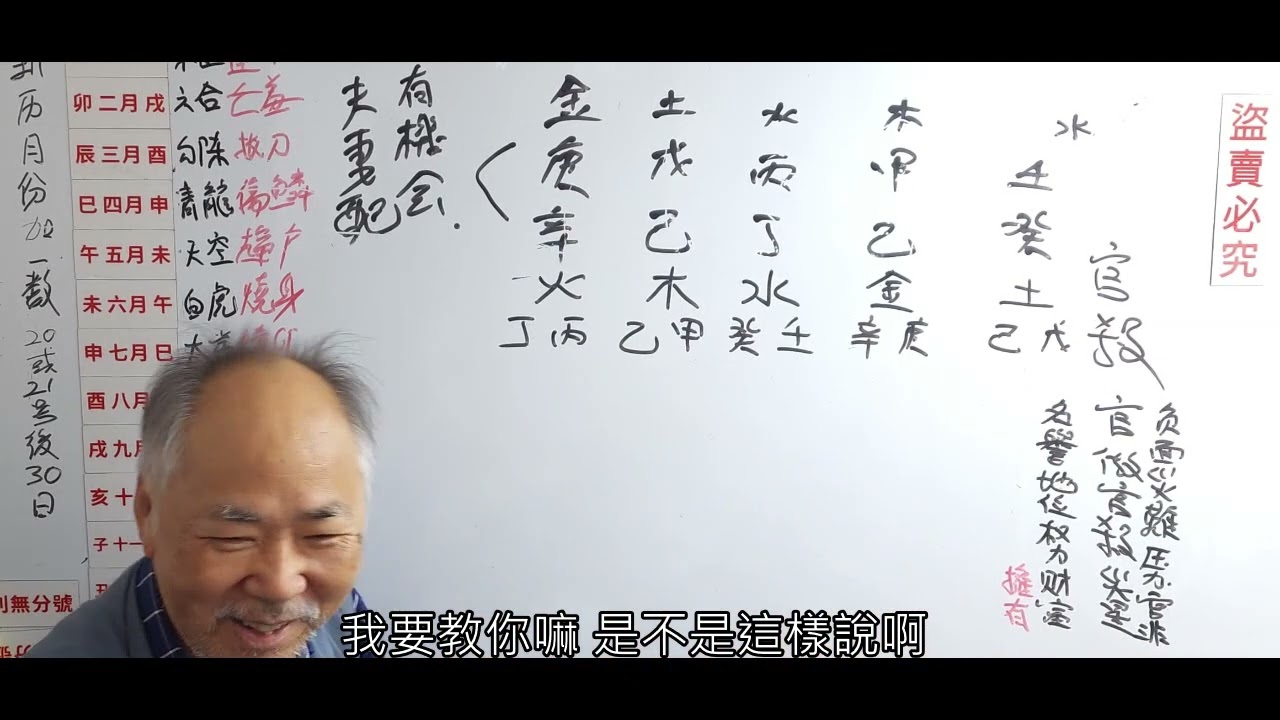 历月份加一数20或21号後30日
卯二月戌
辰三月酉
巳四月申
午五月未
未六月午
申七月巳
酉八月
戌九月
亥十
子十一
丑
利無分號
六合
勾陈
青龍
天空
白虎
亡
拔刀
燒身
有機会.
夫妻配
金 土 火 木 水
庚 戊 丙 甲 壬
辛 己 丁 乙 癸
火 木 水 金 土
丁丙 乙甲 癸壬 辛庚 己戊
官殺
负面災難压力官非
官做官殺災
名譽地位权力财富
擁有
盜賣必究
我要教你嘛 是不是這樣說啊